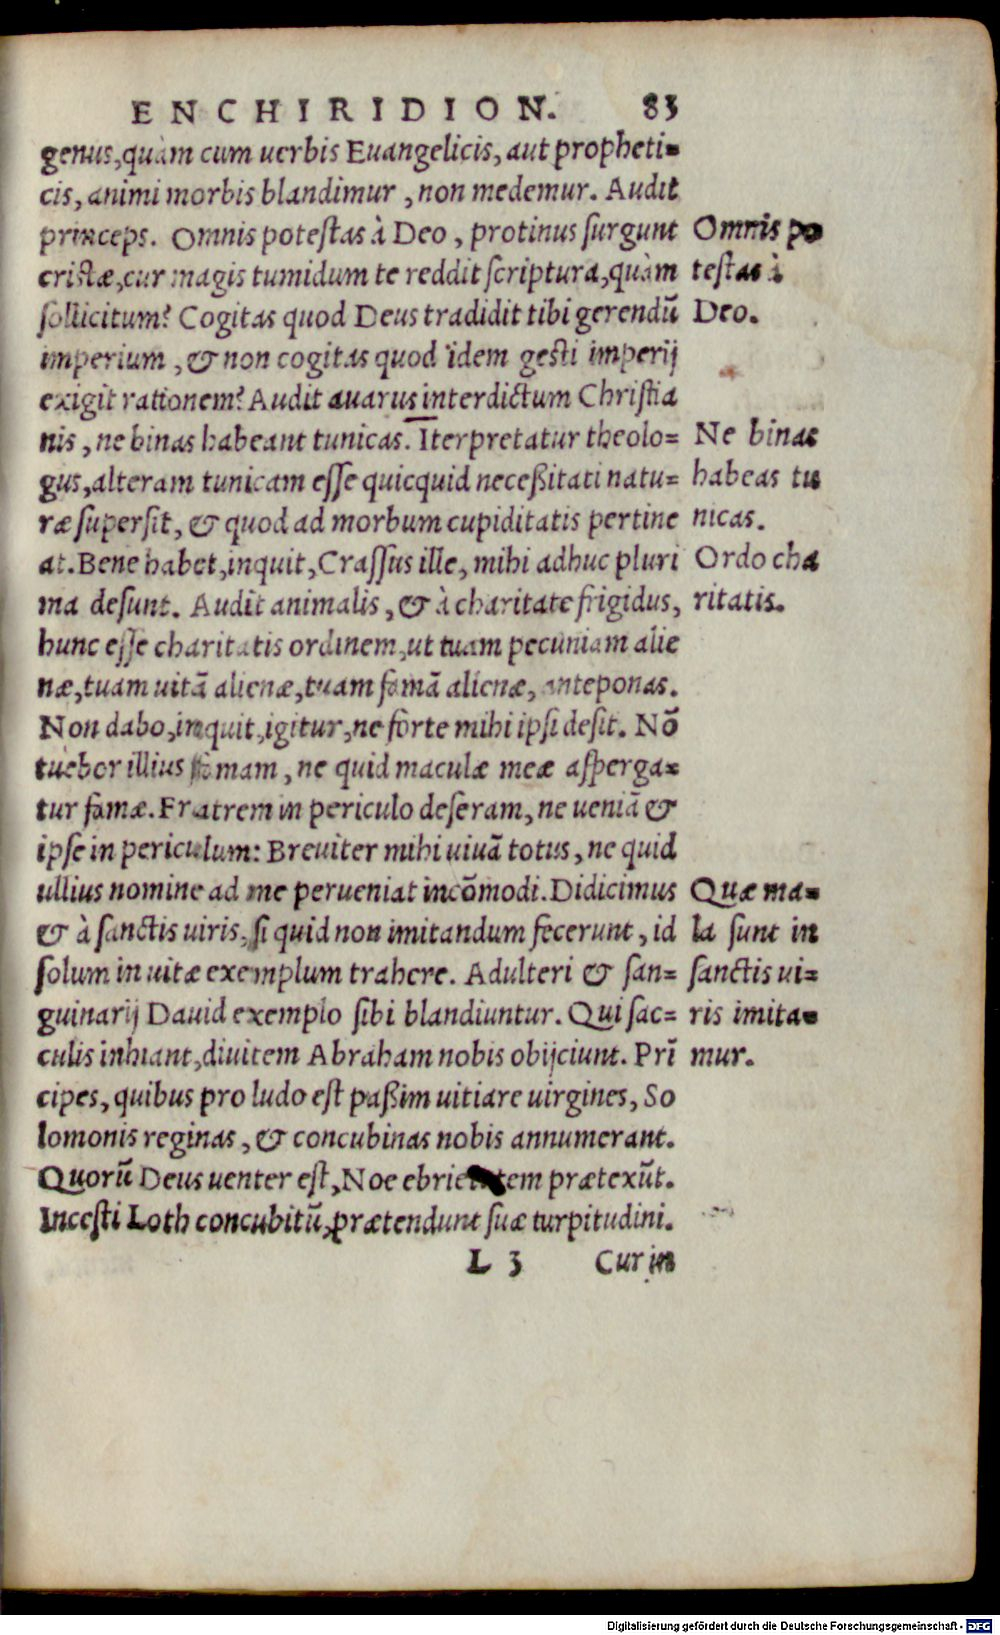 ENCHIRIDION. 83
genus, quàm cum uerbis Euangelicis, aut propheti=
cis, animi morbis blandimur, non medemur. Audit
princeps. Omnis potestas à Deo, protinus surgunt
cristæ, cur magis tumidum te reddit scriptura, quàm
sollicitum? Cogitas quod Deus tradidit tibi gerendū
imperium, & non cogitas quod idem gesti imperij
exigit rationem? Audit auarus interdictum Christia
nis, ne binas habeant tunicas. Iterpretatur theolo=
gus, alteram tunicam esse quicquid neceßitati natu=
ræ supersit, & quod ad morbum cupiditatis pertine
at. Bene habet, inquit, Crassus ille, mihi adhuc pluri
ma desunt. Audit animalis, & à charitate frigidus,
hunc esse charitatis ordinem, ut tuam pecuniam alie
næ, tuam uitā alienæ, tuam famā alienæ, anteponas.
Non dabo, inquit, igitur, ne forte mihi ipsi desit. Nō
tuebor illius famam, ne quid maculæ meæ asperga=
tur famæ. Fratrem in periculo deseram, ne ueniā &
ipse in periculum: Breuiter mihi uiuā totus, ne quid
ullius nomine ad me perueniat incōmodi. Didicimus
& à sanctis uiris, si quid non imitandum fecerunt, id
solum in uitæ exemplum trahere. Adulteri & san=
guinarij Dauid exemplo sibi blandiuntur. Qui sac=
culis inhiant, diuitem Abraham nobis obijciunt. Prī
cipes, quibus pro ludo est paßim uitiare uirgines, So
lomonis reginas, & concubinas nobis annumerant.
Quorū Deus uenter est, Noe ebrietatem prætexūt.
Incesti Loth concubitū, prætendunt suæ turpitudini.
L 3 Cur in
Omnis po
testas à
Deo.
Ne binas
habeas tu
nicas.
Ordo cha
ritatis.
Quæ ma=
la sunt in
sanctis ui=
ris imita=
mur.
Digitalisierung gefördert durch die Deutsche Forschungsgemeinschaft - DFG